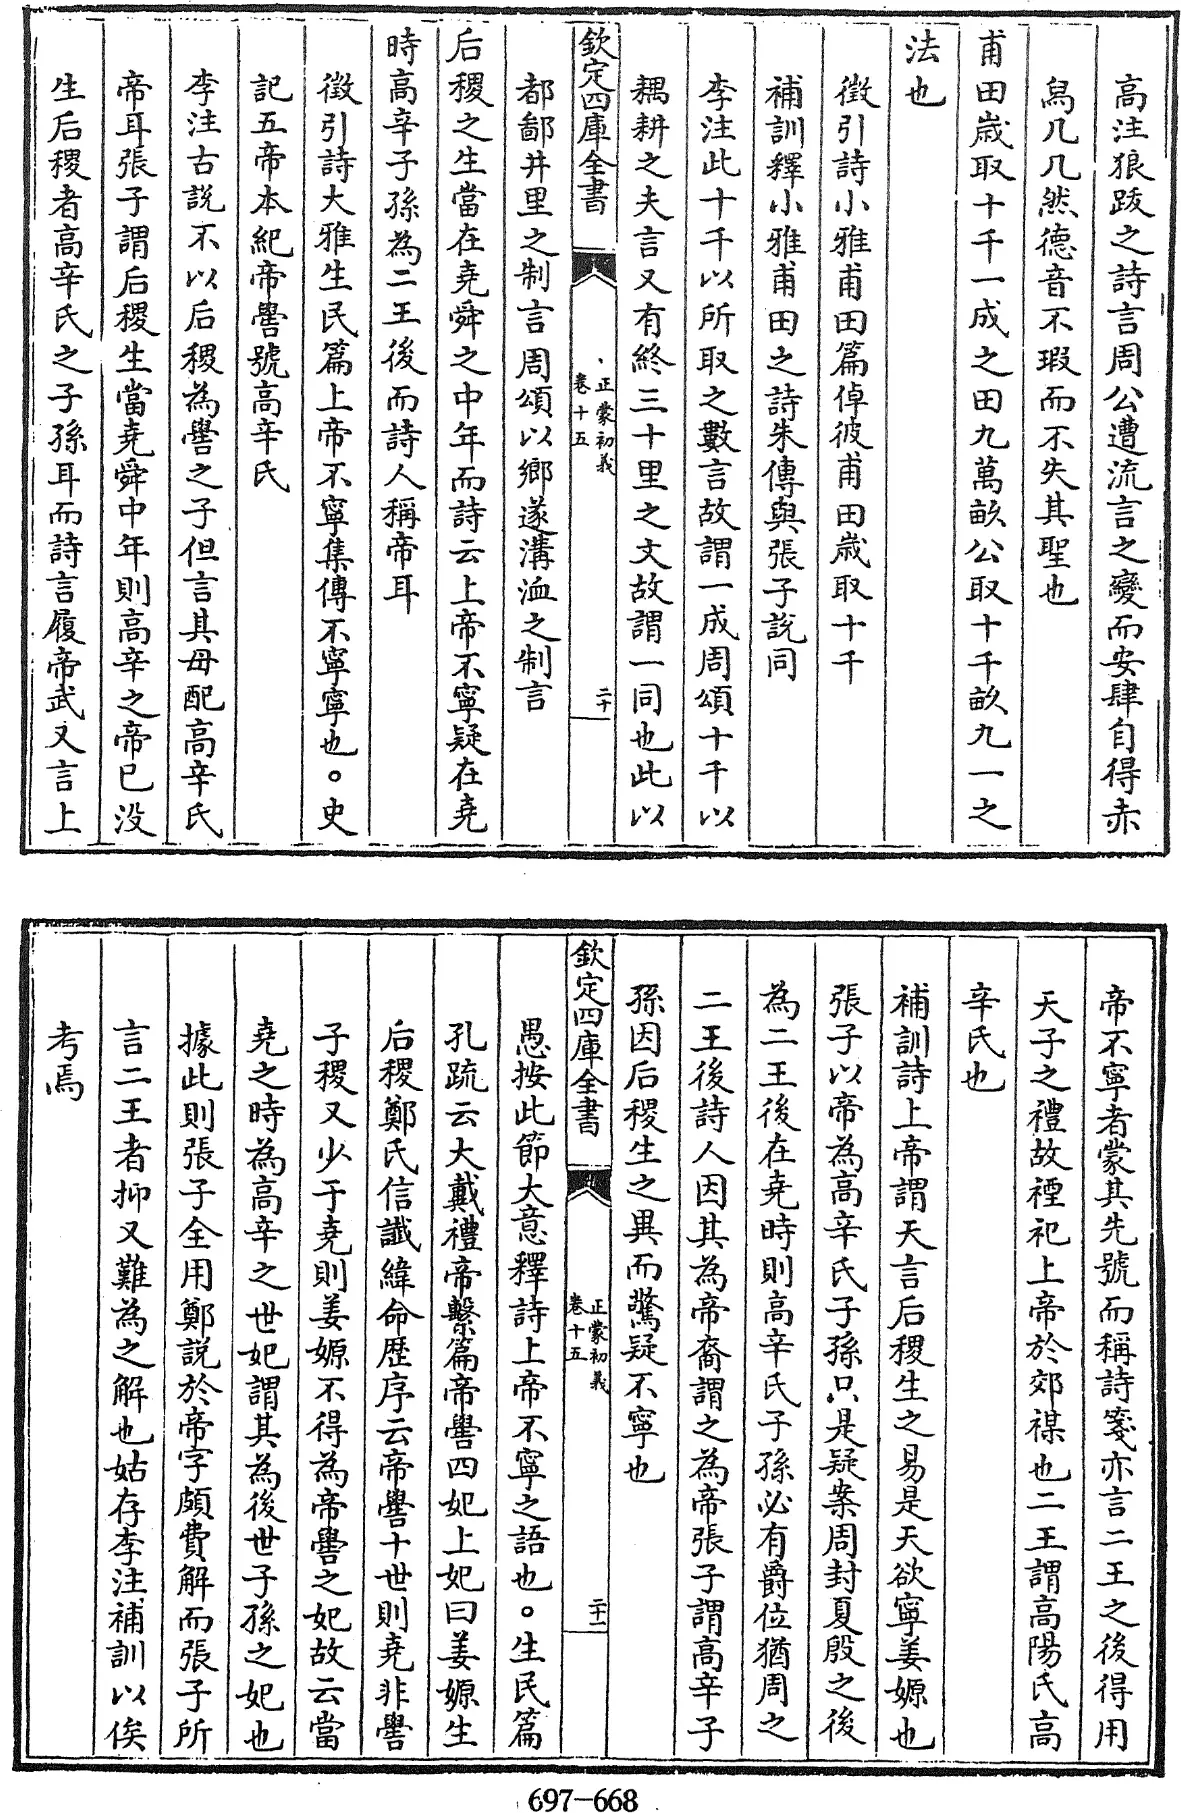 高注狼跋之詩言周公遭流言之變而安肆自得赤
舄几几然德音不瑕而不失其聖也
甫田歳取十千一成之田九萬畝公取十千畝九一之
法也
徵引詩小雅甫田篇倬彼甫田歳取十千
補訓釋小雅甫田之詩朱傳與張子說同
李注此十千以所取之數言故謂一成周頌十千以
耦耕之夫言又有終三十里之文故謂一同也此以
欽定四庫全書
正蒙初義
卷十五
二十
都鄙井里之制言周頌以鄉遂溝洫之制言
后稷之生當在堯舜之中年而詩云上帝不寧疑在堯
時高辛子孫為二王後而詩人稱帝耳
徵引詩大雅生民篇上帝不寧集傳不寧寧也。史
記五帝本紀帝嚳號高辛氏
李注古說不以后稷為嚳之子但言其母配高辛氏
帝耳張子謂后稷生當堯舜中年則高辛之帝已没
生后稷者高辛氏之子孫耳而詩言履帝武又言上
帝不寧者蒙其先號而稱詩箋亦言二王之後得用
天子之禮故禋祀上帝於郊禖也二王謂高陽氏高
辛氏也
補訓詩上帝謂天言后稷生之易是天欲寧姜嫄也
張子以帝為高辛氏子孫只是疑案周封夏殷之後
為二王後在堯時則高辛氏子孫必有爵位猶周之
二王後詩人因其為帝裔謂之為帝張子謂高辛子
孫因后稷生之異而驚疑不寧也
欽定四庫全書
正蒙初義
卷十五
二十一
愚按此節大意釋詩上帝不寧之語也。生民篇
孔疏云大戴禮帝繫篇帝嚳四妃上妃曰姜嫄生
后稷鄭氏信讖緯命歴序云帝嚳十世則堯非嚳
子稷又少于堯則姜嫄不得為帝嚳之妃故云當
堯之時為高辛之世妃謂其為後世子孫之妃也
據此則張子全用鄭說於帝字頗費解而張子所
言二王者抑又難為之解也姑存李注補訓以俟
考焉
697-668